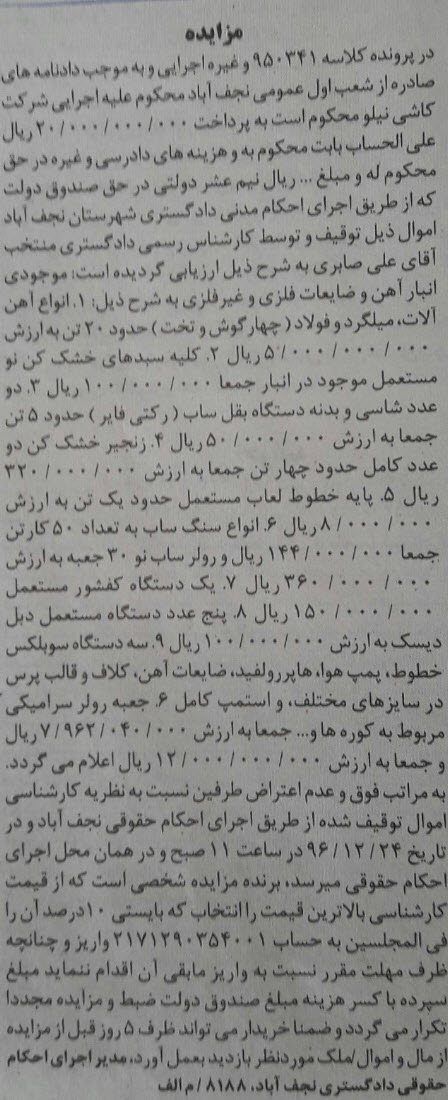 مزایده
در پرونده کلاسه ۹۵۰۳۴۱ و غیره اجرایی و به موجب دادنامه های
صادره از شعب اول عمومی نجف آباد محکوم علیه اجرایی شرکت
کاشی نیلو محکوم است به پرداخت ۲۰/۰۰۰/۰۰۰/۰۰۰ ریال
علی الحساب بابت محکوم به و هزینه های دادرسی و غیره در حق
محکوم له و مبلغ ... ریال نیم عشر دولتی در حق صندوق دولت
که از طریق اجرای احکام مدنی دادگستری شهرستان نجف آباد
اموال ذیل توقیف و توسط کارشناس رسمی دادگستری منتخب
آقای علی صابری به شرح ذیل ارزیابی گردیده است: موجودی
انبار آهن و ضایعات فلزی و غیرفلزی به شرح ذیل: ۱. انواع آهن
آلات، میلگرد و فولاد (چهارگوش و تخت) حدود ۲۰ تن به ارزش
۵/۰۰۰/۰۰۰/۰۰۰ ریال ۲. کلیه سبدهای خشک کن نو
مستعمل موجود در انبار جمعا ۱۰۰/۰۰۰/۰۰۰ ریال ۳. دو
عدد شاسی و بدنه دستگاه بقل ساب (رکتی فایر) حدود ۵ تن
جمعا به ارزش ۵۰/۰۰۰/۰۰۰ ریال ۴. زنجیر خشک کن دو
عدد کامل حدود چهار تن جمعا به ارزش ۳۲۰/۰۰۰/۰۰۰
ریال ۵. پایه خطوط لعاب مستعمل حدود یک تن به ارزش
۸/۰۰۰/۰۰۰ ریال ۶. انواع سنگ ساب به تعداد ۵۰ کارتن
جمعا ۱۴۴/۰۰۰/۰۰۰ ریال و رولر ساب نو ۳۰ جعبه به ارزش
۳۶۰/۰۰۰/۰۰۰ ریال ۷. یک دستگاه کفشور مستعمل
۱۵۰/۰۰۰/۰۰۰ ریال ۸. پنج عدد دستگاه مستعمل دبل
دیسک به ارزش ۱۰۰/۰۰۰/۰۰۰ ریال ۹. سه دستگاه سوبلکس
خطوط، پمپ هوا، هاپررولفید، ضایعات آهن، کلاف و قالب پرس
در سایزهای مختلف، و استمپ کامل ۶. جعبه رولر سرامیکی
مربوط به کوره ها و... جمعا به ارزش ۷/۹۶۲/۰۴۰/۰۰۰ ریال
و جمعا به ارزش ۱۲/۰۰۰/۰۰۰/۰۰۰ ریال اعلام می گردد.
به مراتب فوق و عدم اعتراض طرفین نسبت به نظریه کارشناسی
اموال توقیف شده از طریق اجرای احکام حقوقی نجف آباد و در
تاریخ ۹۶/۱۲/۲۴ در ساعت ۱۱ صبح و در همان محل اجرای
احکام حقوقی میرسد، برنده مزایده شخصی است که از قیمت
کارشناسی بالاترین قیمت را انتخاب که بایستی ۱۰درصد آن را
فی المجلسین به حساب ۲۱۷۱۲۹۰۳۵۴۰۰۱ واریز و چنانچه
ظرف مهلت مقرر نسبت به واریز مابقی آن اقدام ننماید مبلغ
سپرده با کسر هزینه مبلغ صندوق دولت ضبط و مزایده مجددا
تکرار می گردد و ضمنا خریدار می تواند ظرف ۵ روز قبل از مزایده
از مال و اموال/ملک موردنظر بازدید بعمل آورد، مدیر اجرای احکام
حقوقی دادگستری نجف آباد، ۸۱۸۸/م الف